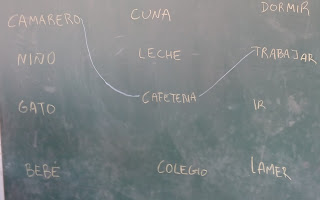 CAMARERO CUNA DORMIR
NIÑO LECHE TRABAJAR
GATO CAFETERIA IR
BEBÉ COLEGIO LAMER